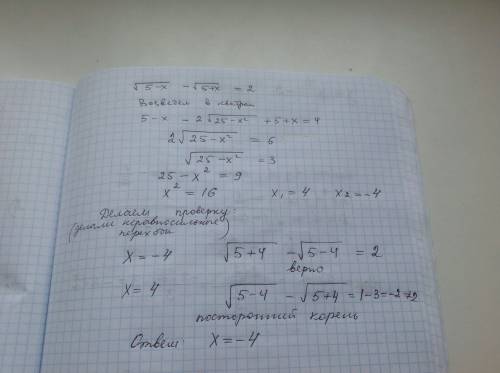 √5-x - √5+x = 2
Возведем в квадрат
5-x - 2√25-x² + 5+x = 4
2√25-x² = 6
√25-x² = 3
25 - x² = 9
x² = 16 x₁ = 4 x₂ = -4
Делаем проверку
(делали неравносильные
переходы)
x = -4 √5+4 - √5-4 = 2
верно
x = 4 √5-4 - √5+4 = 1-3=-2≠2
посторонний корень
Ответ: x = -4